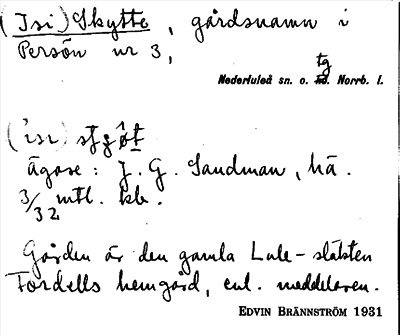 (Isi) Skytte, gårdsnamn i
Persön nr 3,
tg
Nederluleå sn. o. hd. Norrb. l.
(isi)
ägare: J. G. Sandman, hä.
3/32 mtl. kb.
Gården är den gamla Lule-släkten
Fordells hemgård, enl. meddelaren.
EDVIN BRÄNNSTRÖM 1931